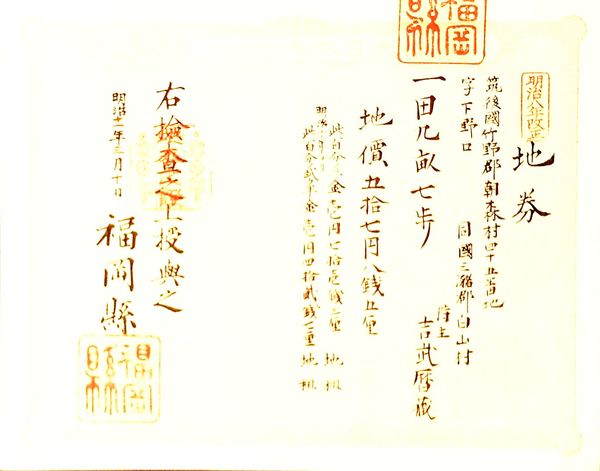 福岡縣
明治八年改正
地券
筑後國竹野郡朝森村四十五番地
字下野口
同國三潴郡白山村
一田八畝七歩
持主
吉武暦蔵
地價五拾七円八銭五厘
此百分三金壱円七拾壱銭三厘 地租
明治十年ヨリ
此百分弐ヶ半金壱円四拾弐銭七厘 地租
右検査之上授與之
明治十一年三月十日
福岡縣
福岡縣